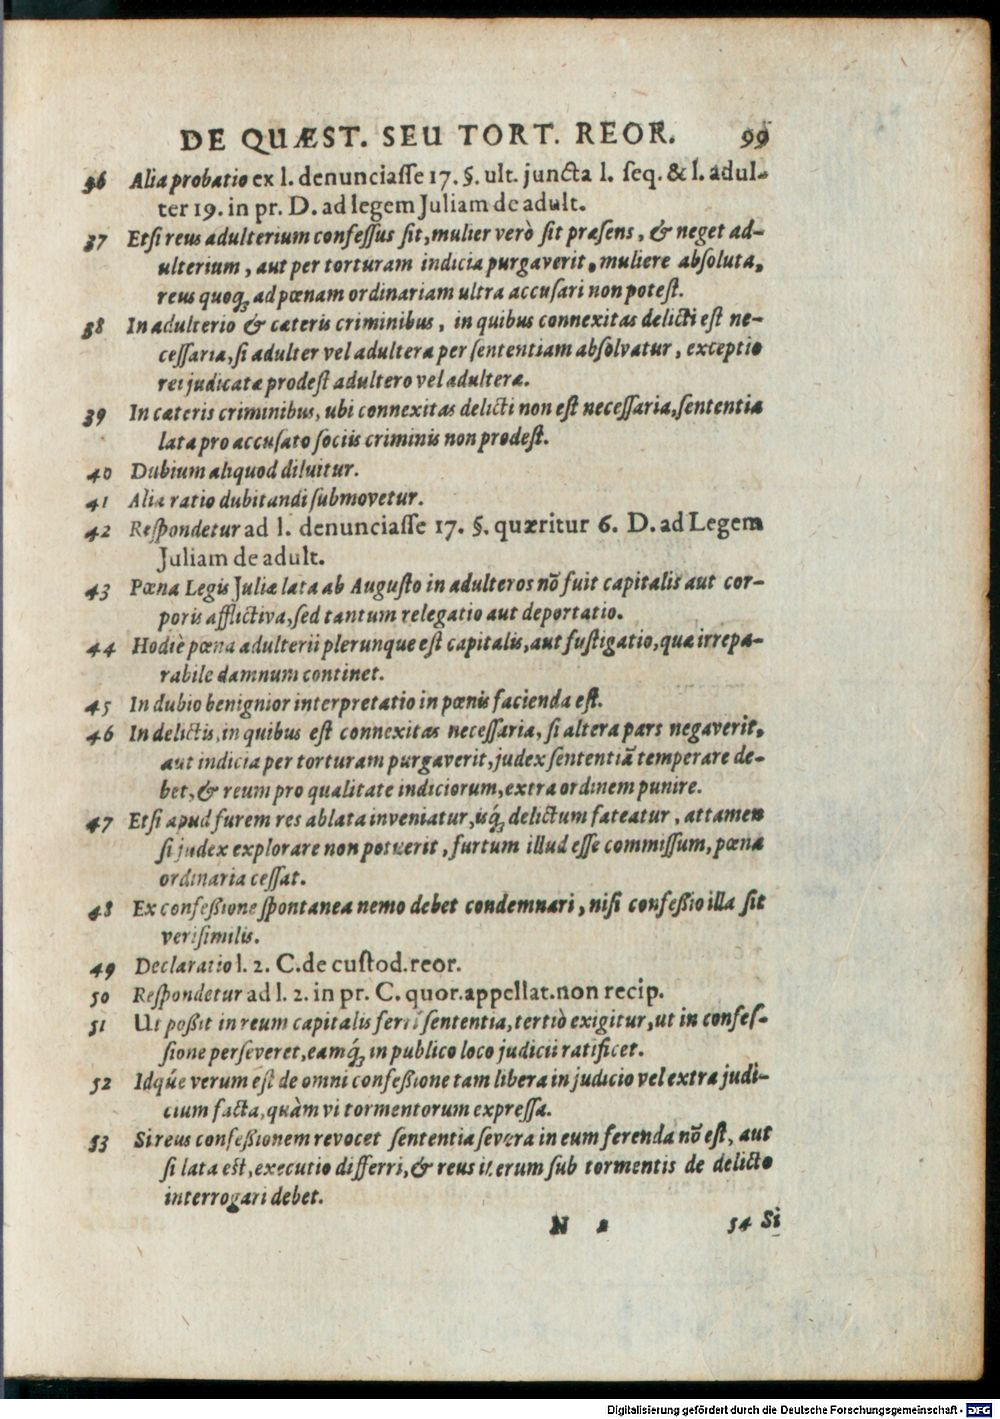 DE QUÆST. SEU TORT. REOR. 99
36 Alia probatio ex l. denunciaſſe 17. §. ult. juncta l. ſeq. & l. adul-
ter 19. in pr. D. ad legem Juliam de adult.
37 Etſi reus adulterium confeſſus ſit, mulier verò ſit præſens, & neget ad-
ulterium, aut per torturam indicia purgaverit, muliere abſoluta,
reus quoq; ad pœnam ordinariam ultra accuſari non poteſt.
38 In adulterio & cæteris criminibus, in quibus connexitas delicti eſt ne-
ceſſaria, ſi adulter vel adultera per ſententiam abſolvatur, exceptio
rei judicatæ prodeſt adultero vel adulteræ.
39 In cæteris criminibus, ubi connexitas delicti non eſt neceſſaria, ſententia
lata pro accuſato ſociis criminis non prodeſt.
40 Dubium aliquod diluitur.
41 Alia ratio dubitandi ſubmovetur.
42 Reſpondetur ad l. denunciaſſe 17. §. quæritur 6. D. ad Legem
Juliam de adult.
43 Pœna Legis Juliæ lata ab Auguſto in adulteros nõ fuit capitalis aut cor-
poris afflictiva, ſed tantum relegatio aut deportatio.
44 Hodiè pœna adulterii plerunque eſt capitalis, aut fuſtigatio, quæ irrepa-
rabile damnum continet.
45 In dubio benignior interpretatio in pœnis facienda eſt.
46 In delictis, in quibus eſt connexitas neceſſaria, ſi altera pars negaverit,
aut indicia per torturam purgaverit, judex ſententiã temperare de-
bet, & reum pro qualitate indiciorum, extra ordinem punire.
47 Etſi apud furem res ablata inveniatur, isq́; delictum fateatur, attamen
ſi judex explorare non potuerit, furtum illud eſſe commiſſum, pœna
ordinaria ceſſat.
48 Ex confeßione ſpontanea nemo debet condemnari, niſi confeßio illa ſit
veriſimilis.
49 Declaratio l. 2. C. de cuſtod. reor.
50 Reſpondetur ad l. 2. in pr. C. quor. appellat. non recip.
51 Ut poßit in reum capitalis ferri ſententia, tertiò exigitur, ut in confeſ-
ſione perſeveret, eamq́; in publico loco judicii ratificet.
52 Idq́ue verum eſt de omni confeßione tam libera in judicio vel extra judi-
cium facta, quàm vi tormentorum expreſſa.
53 Si reus confeßionem revocet ſententia ſevera in eum ferenda nõ eſt, aut
ſi lata eſt, executio differri, & reus iterum ſub tormentis de delicto
interrogari debet.
N 2 54 Si
Digitalisierung gefördert durch die Deutsche Forschungsgemeinschaft - DFG